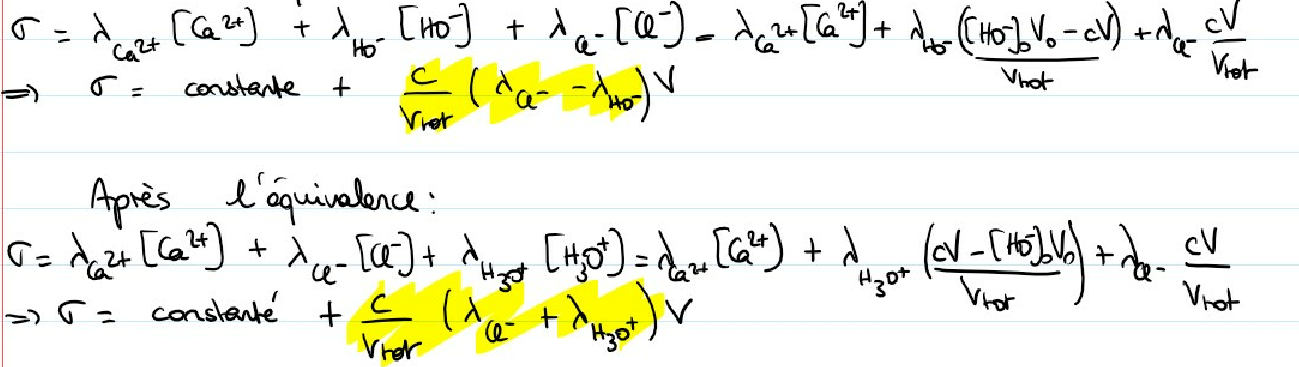 σ = λ_{Ca²⁺} [Ca²⁺] + λ_{HO⁻} [HO⁻] + λ_{Cl⁻} [Cl⁻] = λ_{Ca²⁺} [Ca²⁺] + λ_{HO⁻} ([HO⁻]₀V₀ - cV)/V_{tot} + λ_{Cl⁻} cV/V_{tot}
⇒ σ = constante + c/V_{tot} (λ_{Cl⁻} - λ_{HO⁻}) V
Après l'équivalence :
σ = λ_{Ca²⁺} [Ca²⁺] + λ_{Cl⁻} [Cl⁻] + λ_{H₃O⁺} [H₃O⁺] = λ_{Ca²⁺} [Ca²⁺] + λ_{H₃O⁺} ((cV - [HO⁻]₀V₀)/V_{tot}) + λ_{Cl⁻} cV/V_{tot}
⇒ σ = constanté + c/V_{tot} (λ_{Cl⁻} + λ_{H₃O⁺}) V